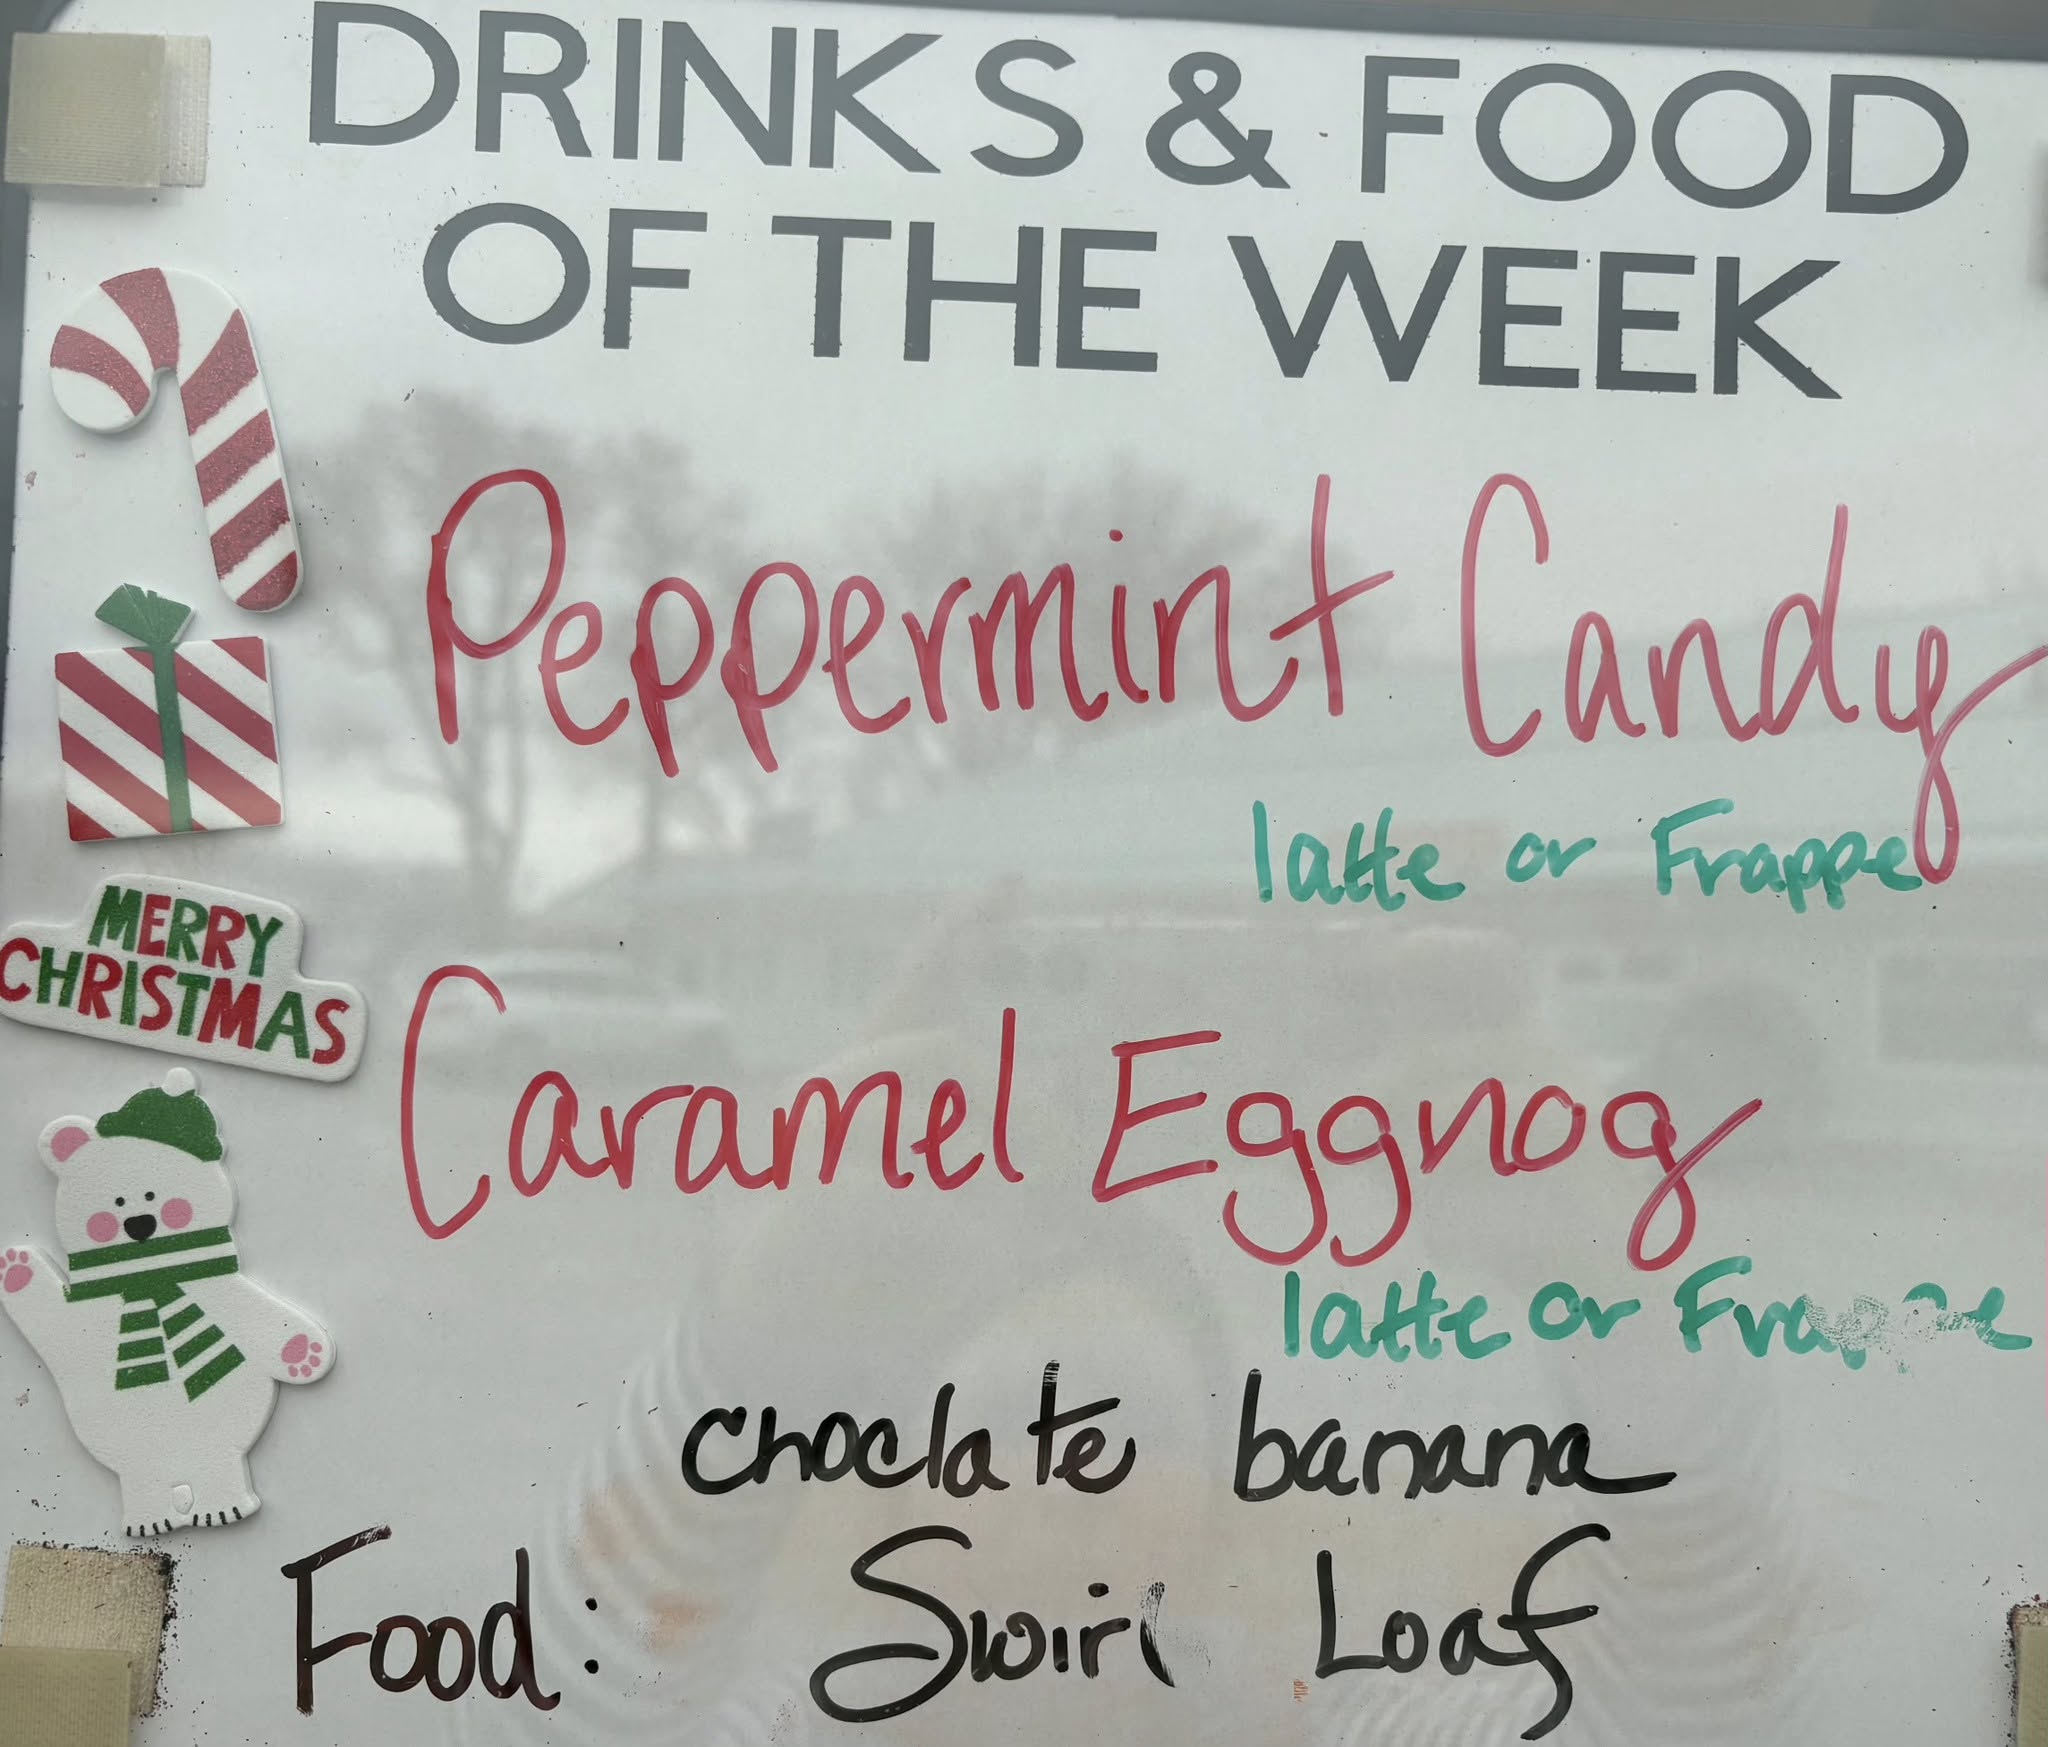 DRINKS & FOOD
OF THE WEEK
Peppermint Candy
latte or Frappe
MERRY
CHRISTMAS
Caramel Eggnog
latte or Frappe
choclate banana
Food: Swirl Loaf